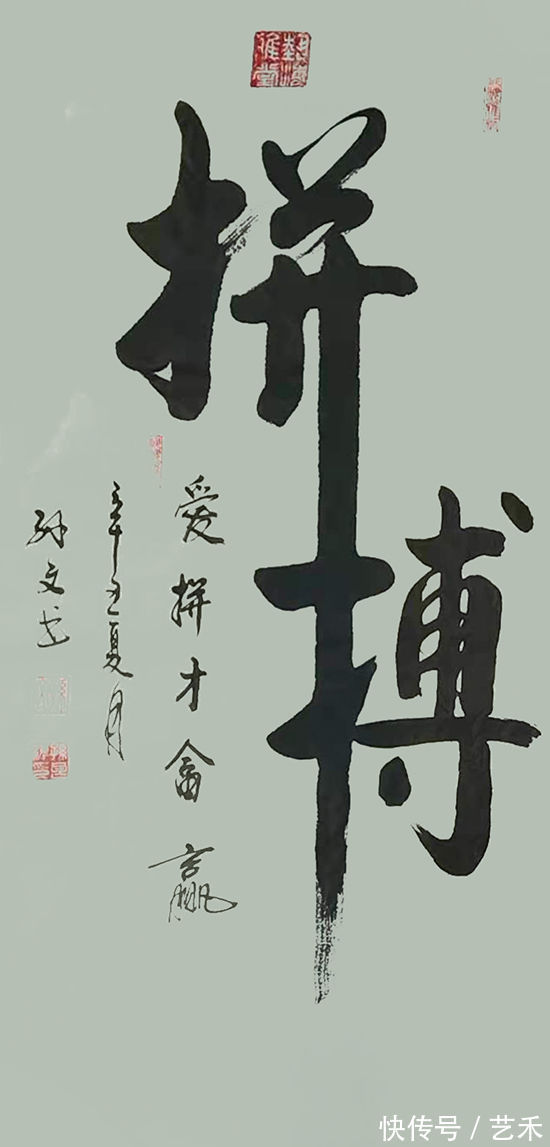 拼搏
爱拼才會赢
辛丑夏月
孙文书
快传号 / 艺禾